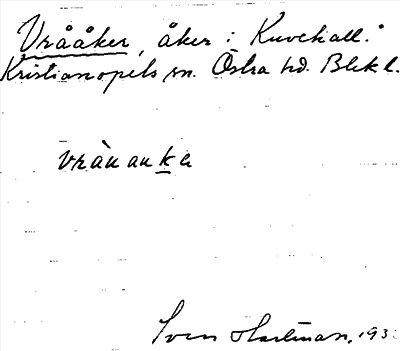 Vrååker, åker i Kuvekall.
Kristianopels sn. Östra hd. Blek l.
vrànanka
Sven Hartman, 193